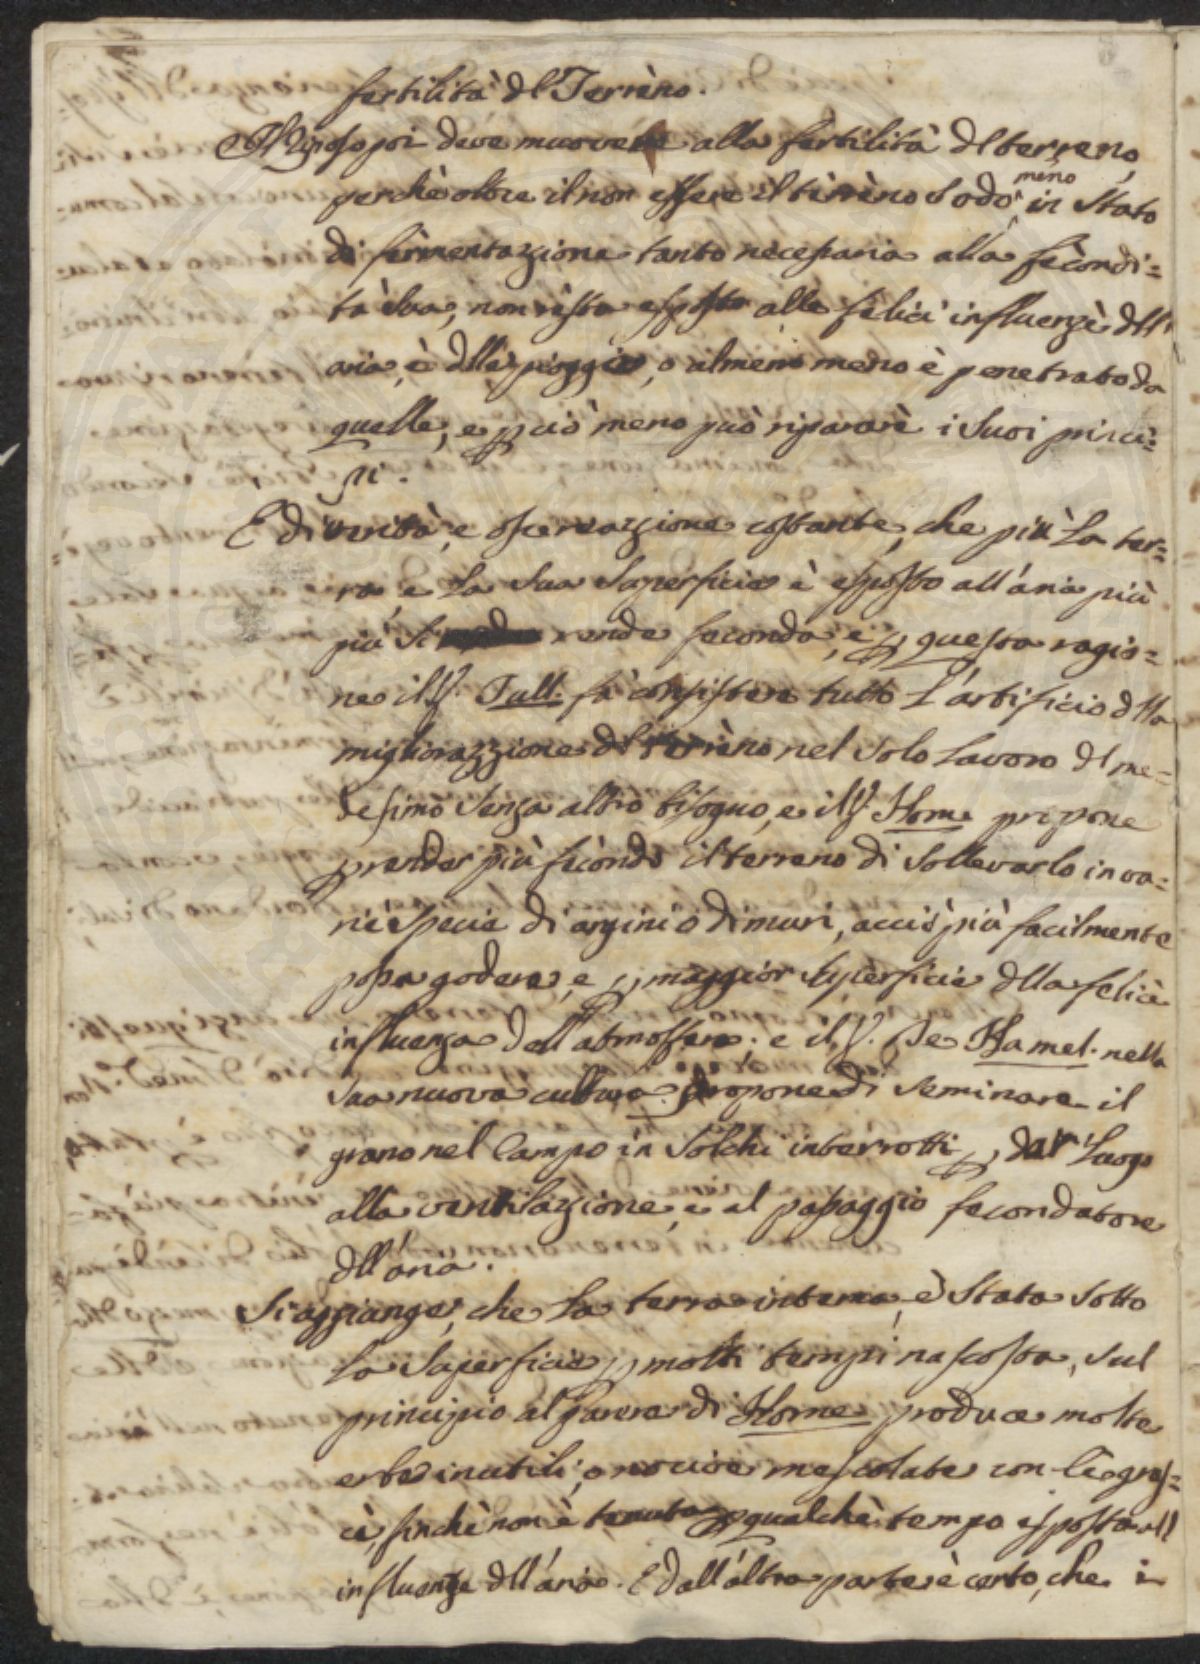 fertilità dl Terrèno.
Il Riposo poi deve nuocere alla fertilità dl terreno,
perchè oltre il non essere il tèrrèno sodo meno in Stato
di fermentazzione tanto necessaria alla fècondi=
tà sua, non rèsta esposto alle felici influenzè dll'
aria, è dlla pioggia, o almeno meno è penetrato da
quelle, e p ciò meno può ripararè i Suoi princi=
pi.
E di verità, e oservazzione costante, che più La ter=
ra e La Sua Superficie è esposto all'aria più
più Si rende feconda, e p questa ragio=
ne il S. Tull. fà consistere tutto L'artificio dlla
migliorazzione dl terrèno nel Solo Lavoro dl me=
desimo Senza altro bisogno, e il S. Home propone
p render più fècondo il terreno di Sollevarlo in va=
rie spècie di argini o di muri, acciò più facilmente
possa godere, e p maggior Supèrficie dlla felicè
influenza dell'atmosfera; e il S. De Hamel. nella
Sua nuova cultura. propone di Seminare il
grano nel Campo in Solchi interrotti p dar Luogo
alla ventilazzione, e al passaggio fecondatore
dll'aria.
Si aggiange, che La terra interna, è Stata Sotto
La Superficie p molti tempi nascosta, Sul
principio al parere di Home prodvce molte
erbe inutili, o nocive mescolate con Lè gras=
cè, finchè non è tenuta p qualchè tempo esposta all
influenza dll'aria. E dall'altra parte è certo, che i